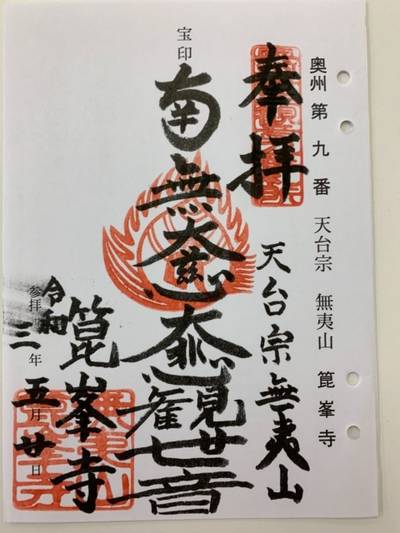 奥州第九番 天台宗 無夷山 箟峯寺
奉拝
天台宗無夷山
宝印
南無大慈大悲観世音
箟峯寺
参拝 令和三年五月廿日